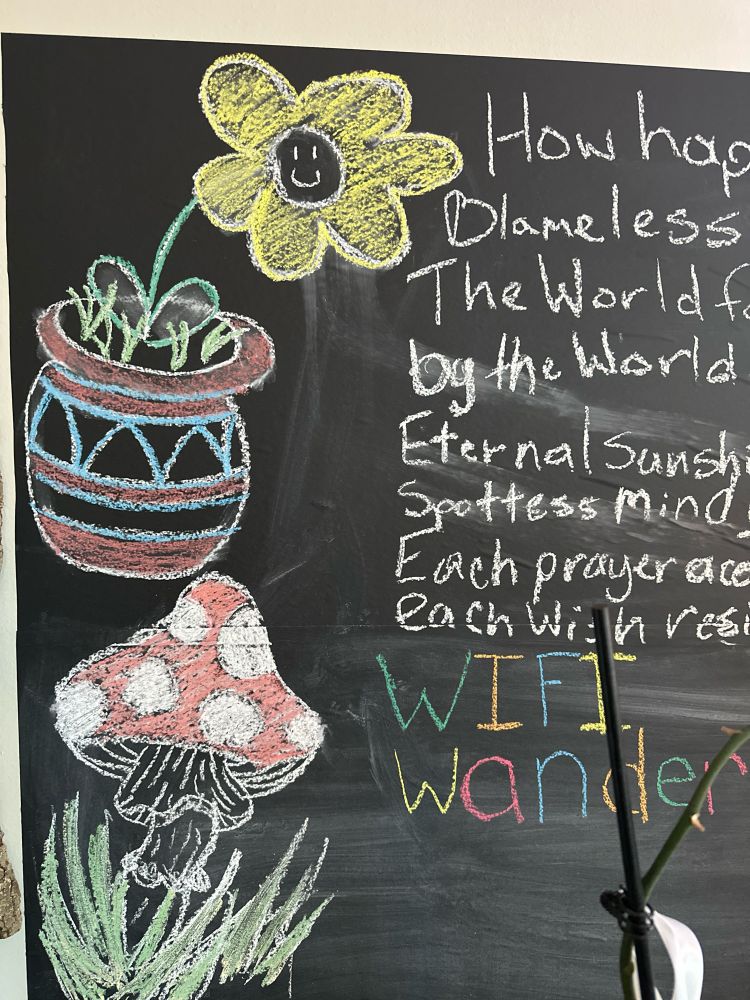 How hap
Blameless
The World fo
by the World
Eternal Sunshi
Spottess Mind
Each prayer acc
each Wish resi
WIFI
wander